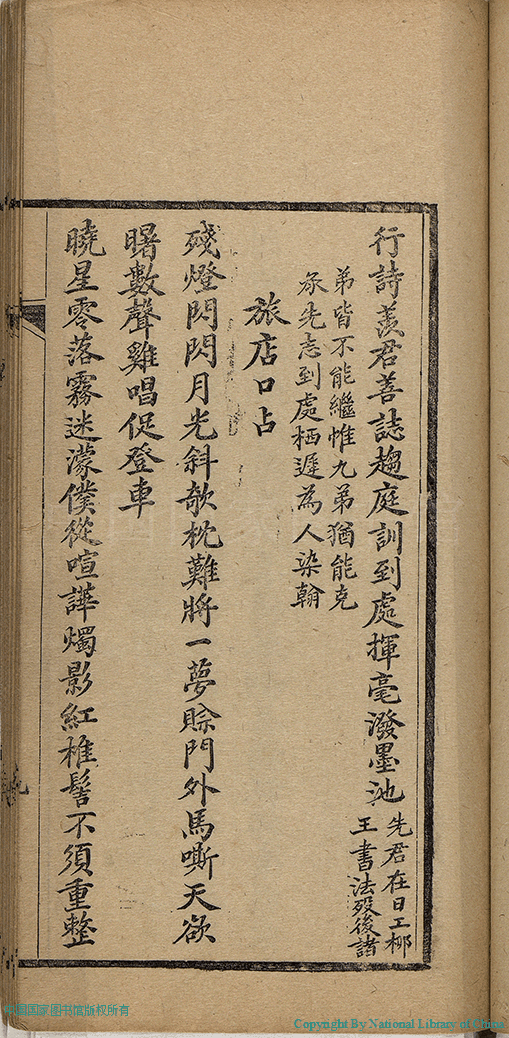 行詩羨君善誌趨庭訓到處揮毫潑墨池
先君在日工柳
王書法歿後諸
弟皆不能繼惟九弟猶能克
承先志到處栖遲為人染翰
旅店口占
殘燈閃閃月光斜欹枕難將一夢賒門外馬嘶天欲
曙數聲雞唱促登車
曉星零落霧迷濛僕從喧譁燭影紅椎髻不須重整
中国国家图书馆版权所有
Copyright By National Library of China